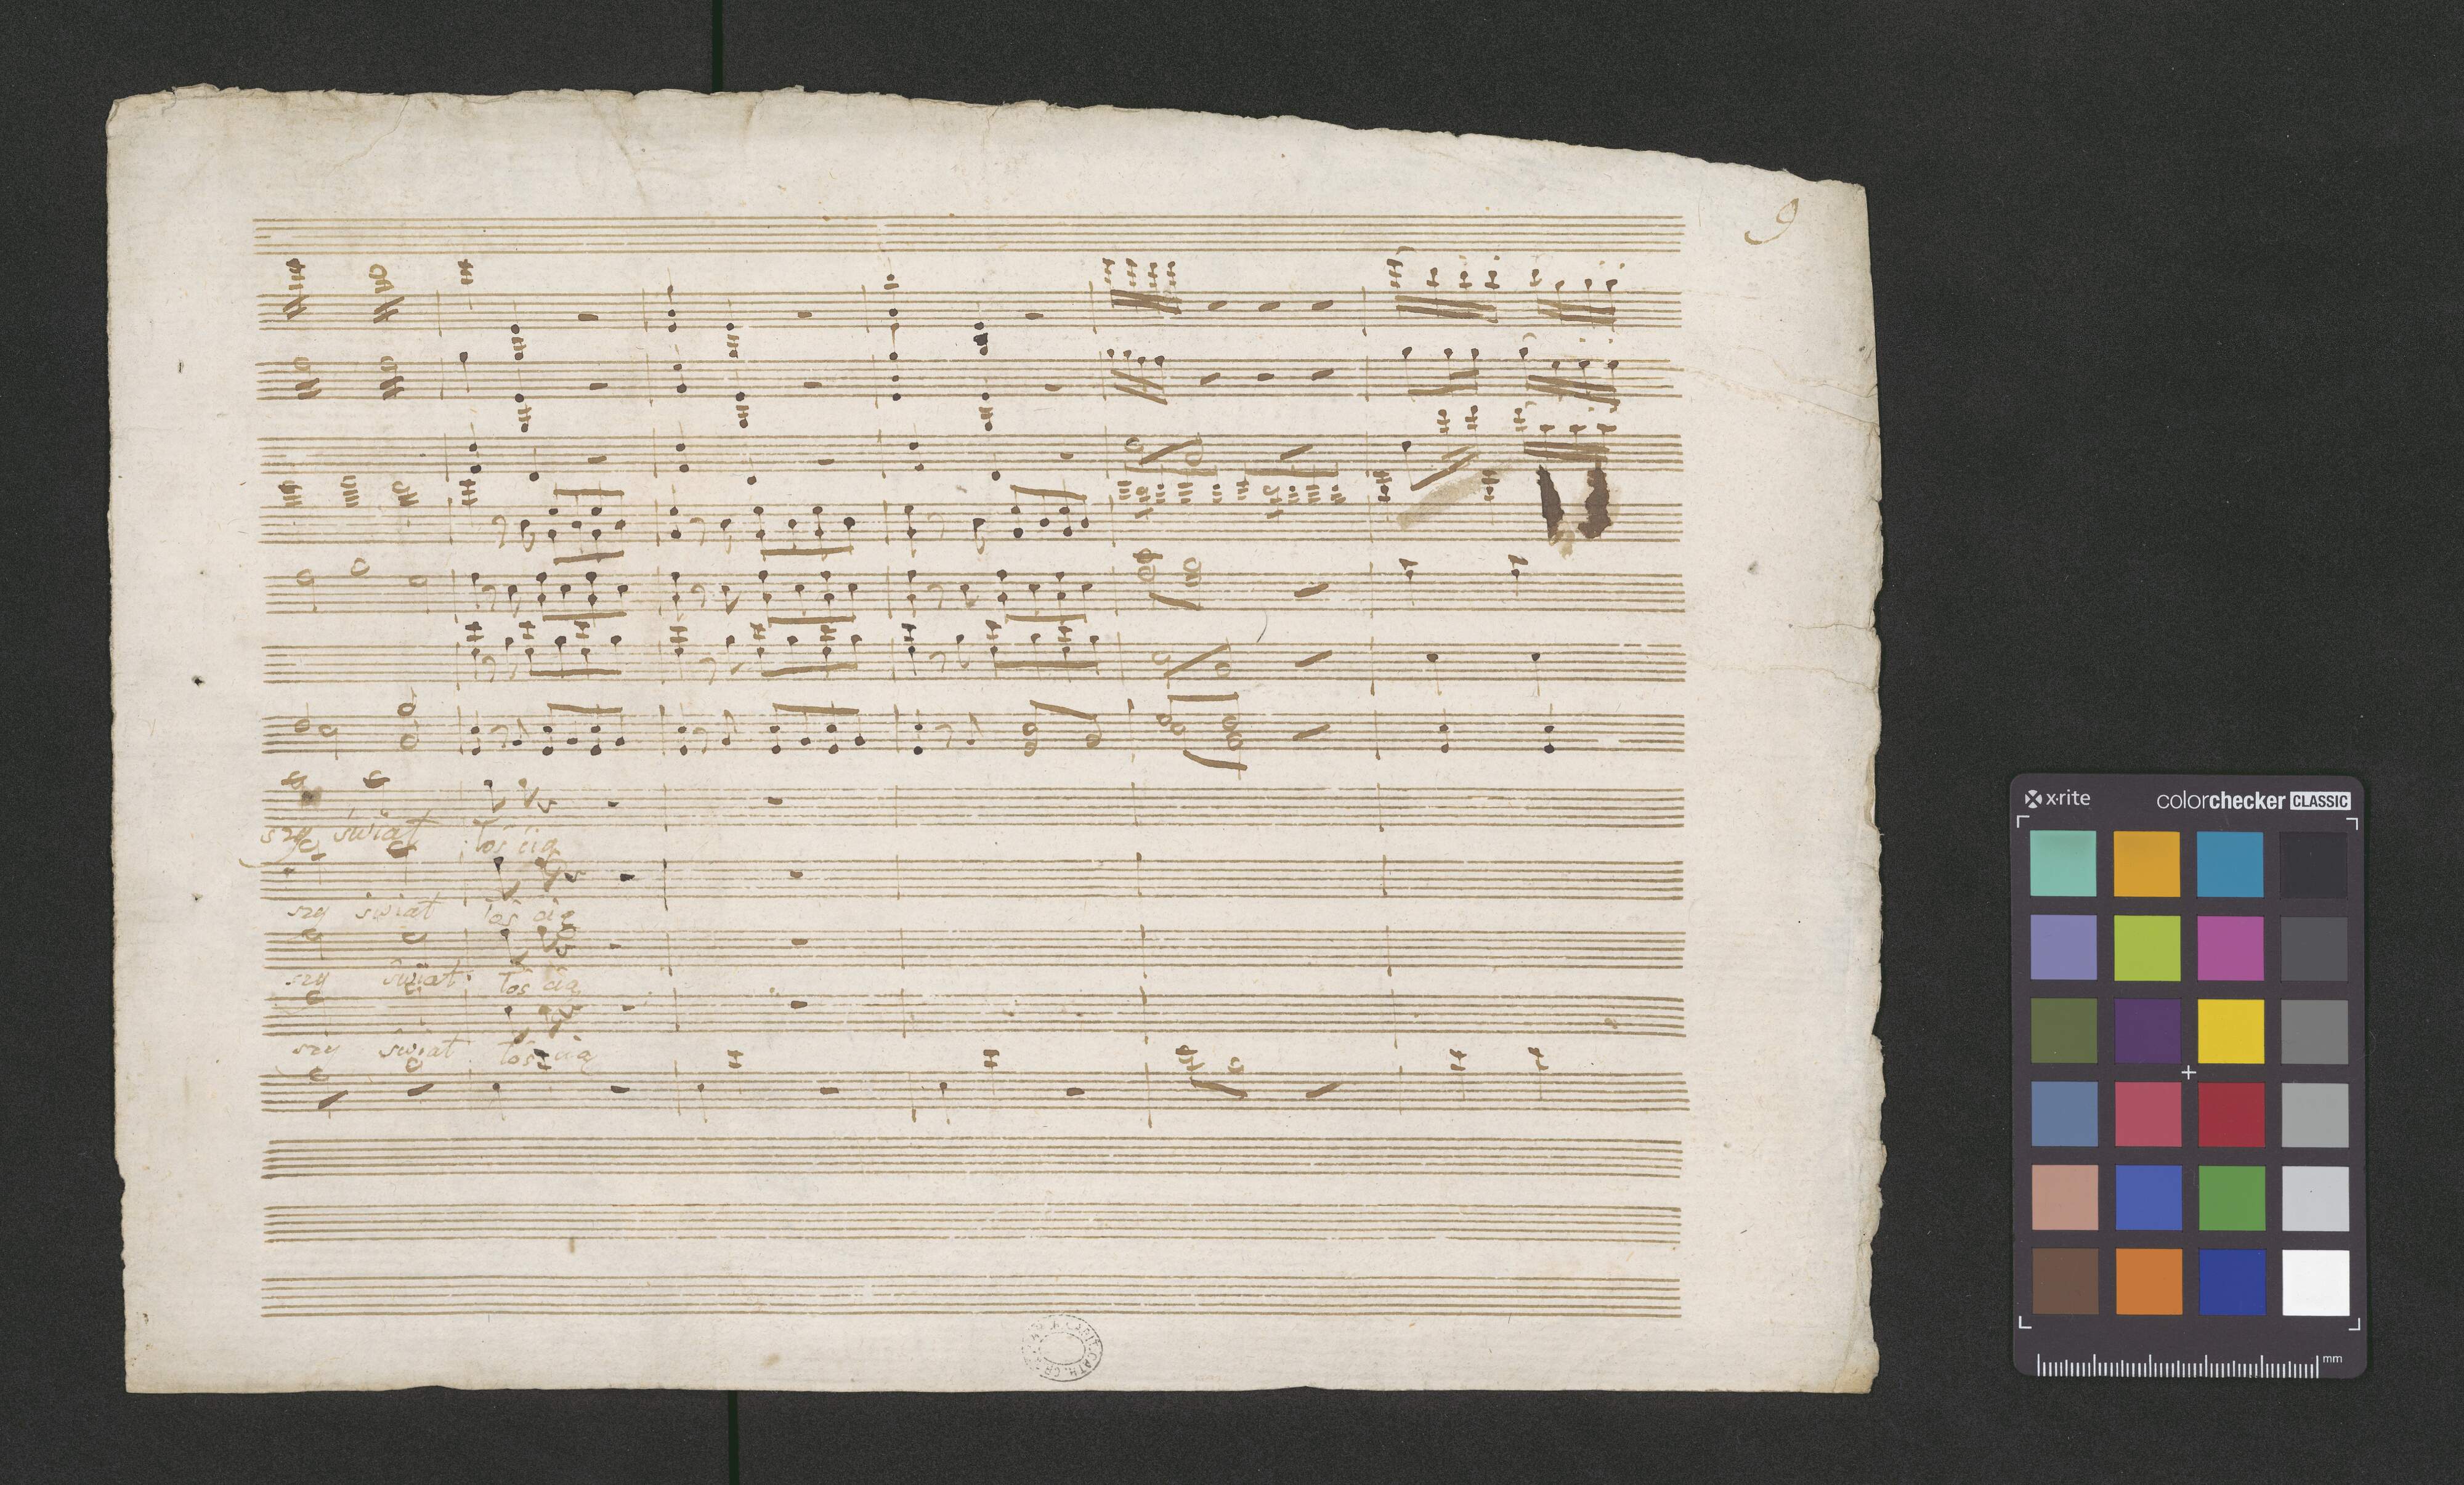 9
szy świat łoś cią
szy świat łoś cią
szy świat łoś cią
szy świat łoś cią
x-rite colorchecker CLASSIC
mm